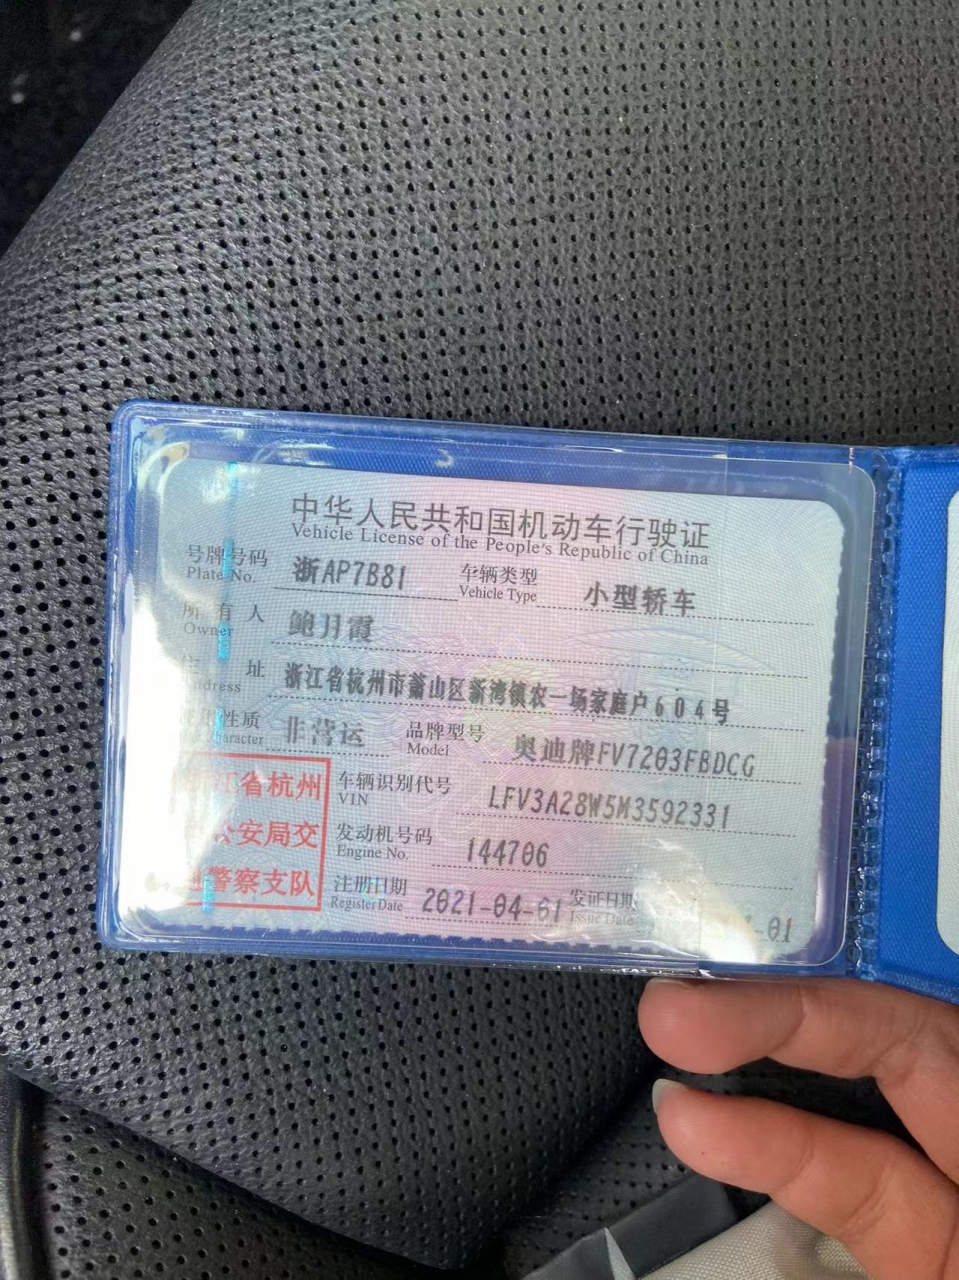 中华人民共和国机动车行驶证
Vehicle License of the People's Republic of China
号牌号码 浙AP7B81 车辆类型 小型轿车
Plate No. Vehicle Type
所有人 鲍月霞
Owner
址 浙江省杭州市萧山区新湾镇农一场家庭户604号
性质 非营运 品牌型号 奥迪牌FV7203FBDCG
Model
车辆识别代号 LFV3A28W5M3592331
VIN
发动机号码 144706
Engine No.
注册日期 2021-04-01 发证日期 -01
Register Date Issue Date
江省杭州
公安局交
警察支队